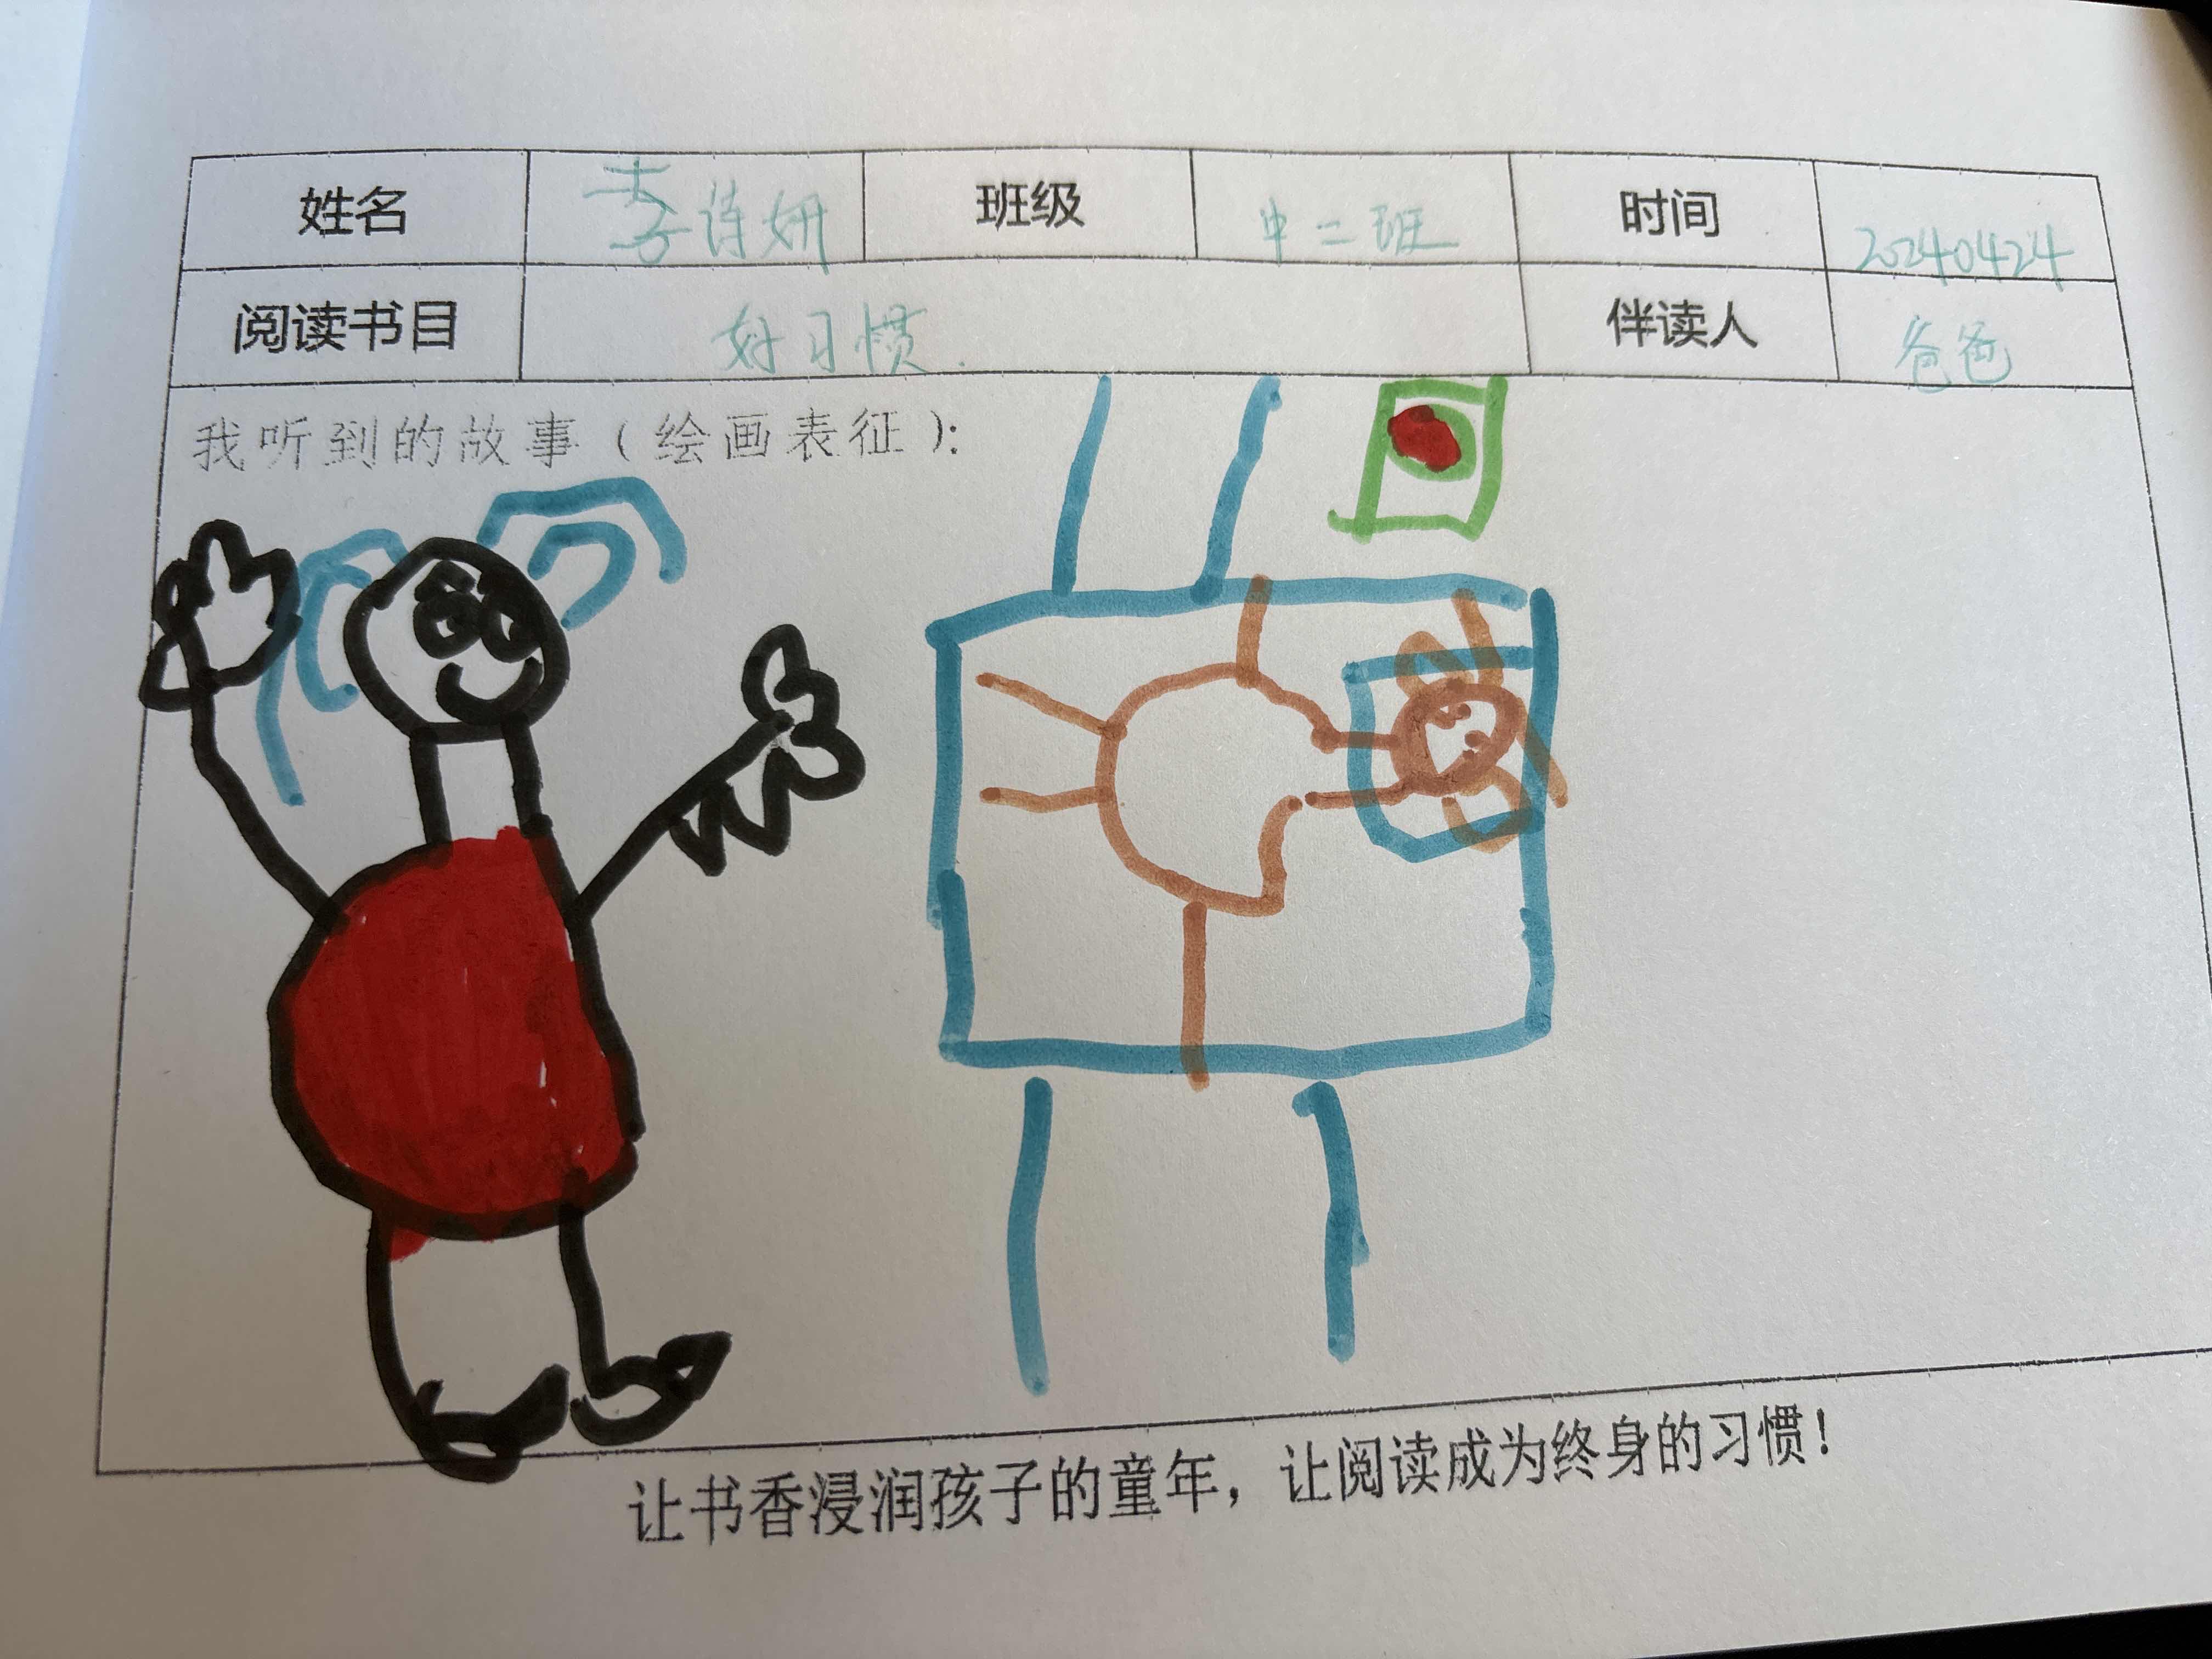 姓名 李诗妍 班级 中二班 时间 20240424
阅读书目 好习惯. 伴读人 爸爸
我听到的故事（绘画表征）：
让书香浸润孩子的童年，让阅读成为终身的习惯！